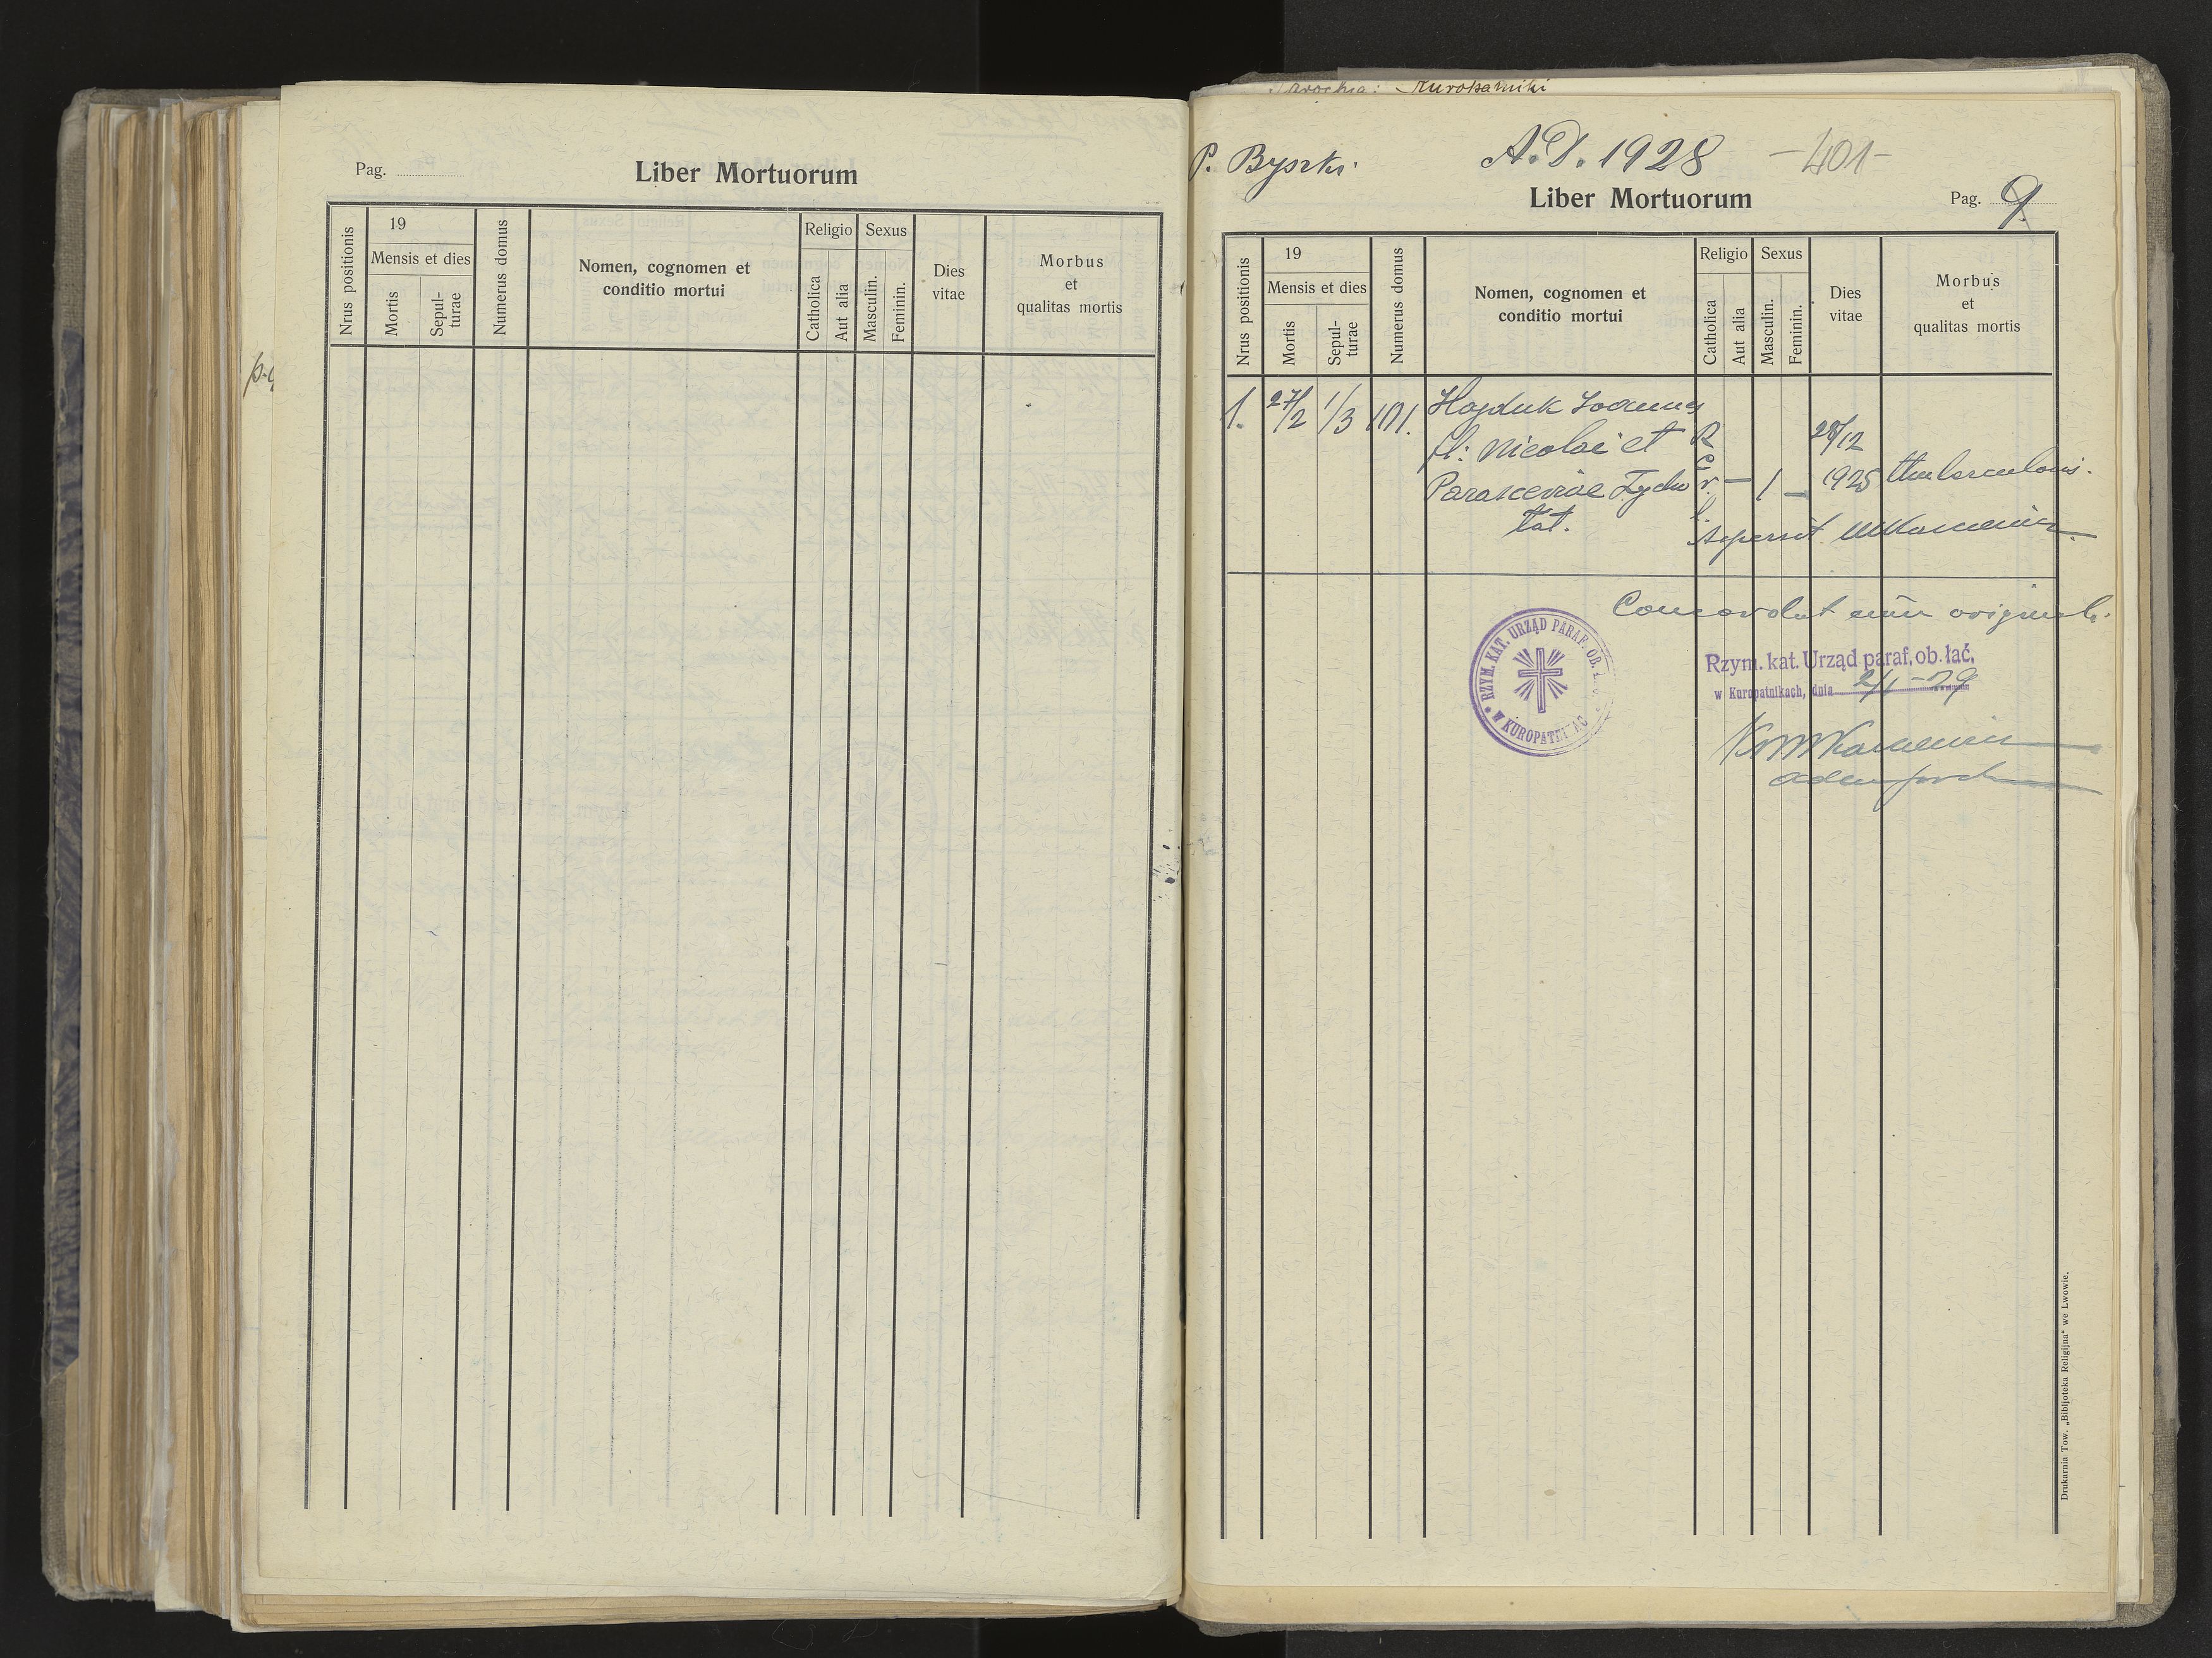 Pag.
Liber Mortuorum
Nrus positionis
19
Mensis et dies
Mortis
Sepul-
turae
Numerus domus
Nomen, cognomen et
conditio mortui
Religio
Catholica
Aut alia
Sexus
Masculin.
Feminin.
Dies
vitae
Morbus
et
qualitas mortis
Parochia: Kuropatniki
P. Byszki.
A.D. 1928
-401-
Liber Mortuorum
Pag. 9.
Nrus positionis
19
Mensis et dies
Mortis
Sepul-
turae
Numerus domus
Nomen, cognomen et
conditio mortui
Religio
Catholica
Aut alia
Sexus
Masculin.
Feminin.
Dies
vitae
Morbus
et
qualitas mortis
1. 27/2 1/3 101. Hajduk Joannes
fil: Nicolai et
Parasceviae
1925
Aspersit
Concordat cum originali.
RZYM. KAT. URZĄD PARAF. OB.
W KUROPATNIKAC
Rzym. kat. Urząd paraf. ob. łać.
w Kuropatnikach, dnia 2/1-29
Drukarnia Tow. „Bibljoteka Religijna" we Lwowie.